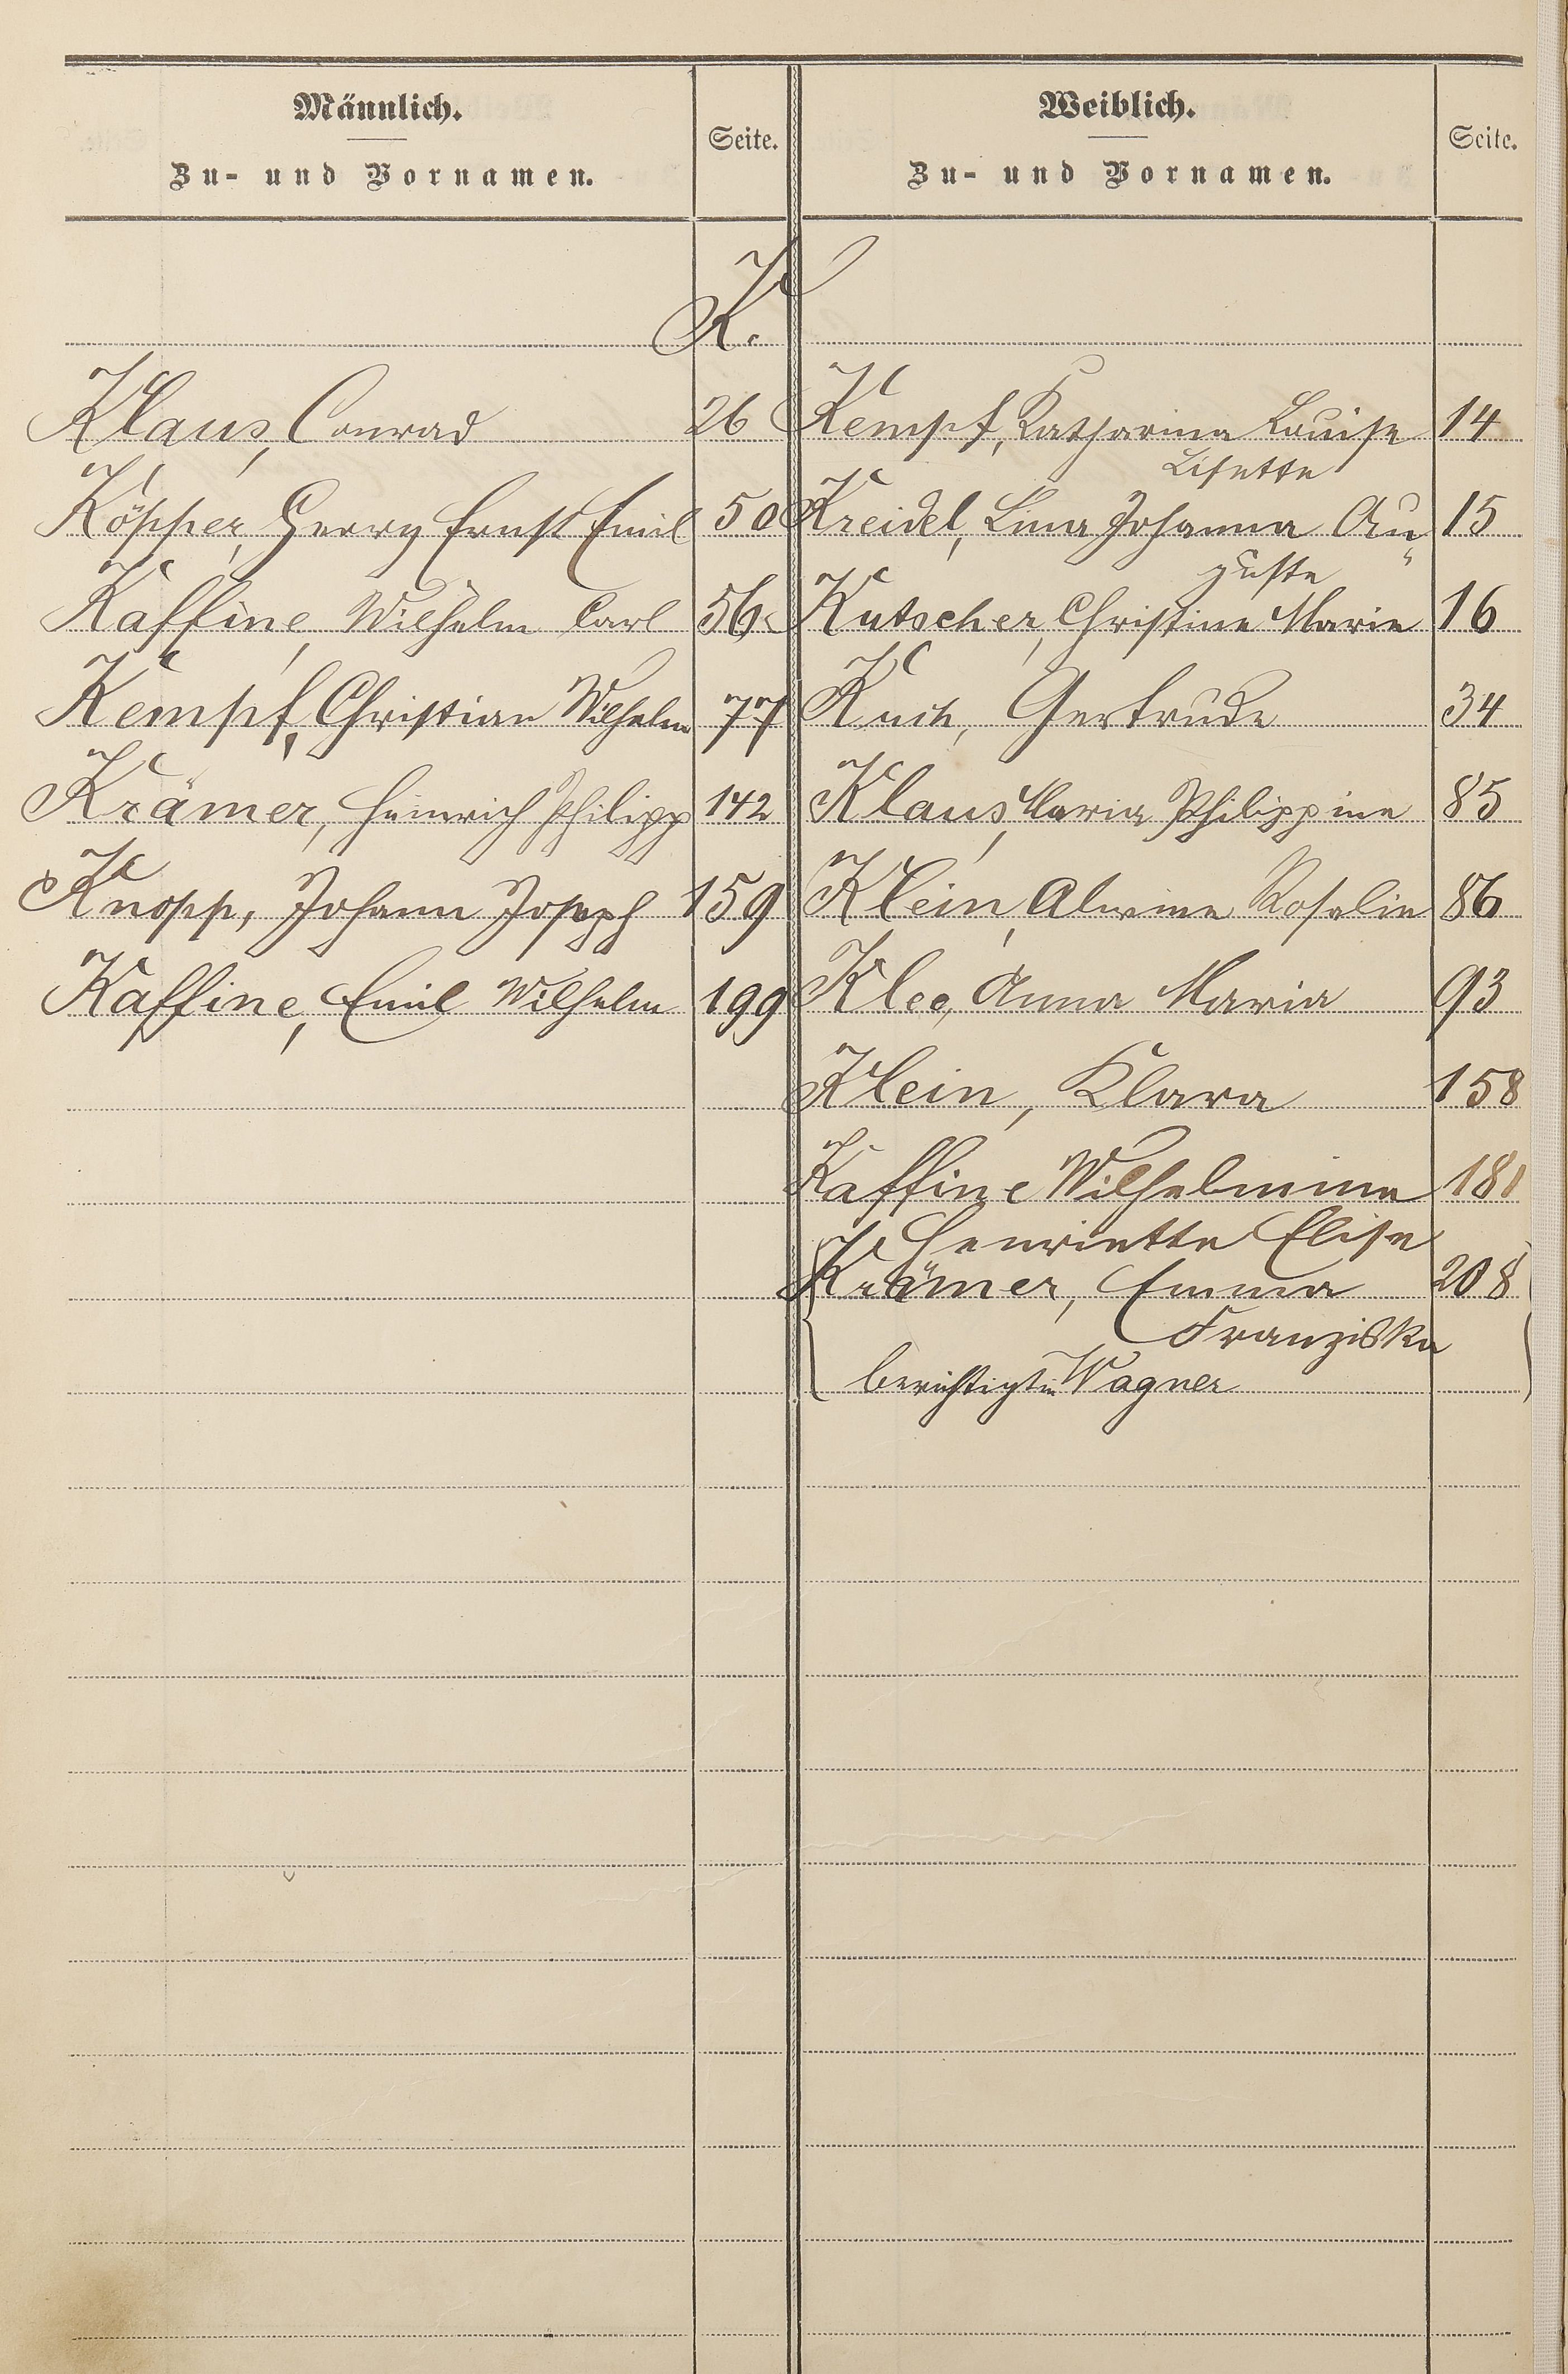 Männlich.
Zu- und Vornamen.
Seite.
Weiblich.
Zu- und Vornamen.
Seite.
K.
Klaus, Conrad 26
Köpper, Georg Ernst Emil 50
Kaffine, Wilhelm Carl 56
Kempf, Christian Wilhelm 77
Krämer, Heinrich Philipp 142
Knopp, Johann Joseph 159
Kaffine, Emil Wilhelm 199
Kempf, Katharina Louise 14
Lisette
Kreidel, Lina Johanna Au„ 15
guste
Kutscher, Christine Marie 16
Koch, Gertrude 34
Klaus, Maria Philippine 85
Klein, Alwine Rosalie 86
Klee, Anna Maria 93
Klein, Klara 158
Kaffine Wilhelmine 181
Henriette Elise
Krämer, Emma 208
Franziska
berichtigt in Wagner